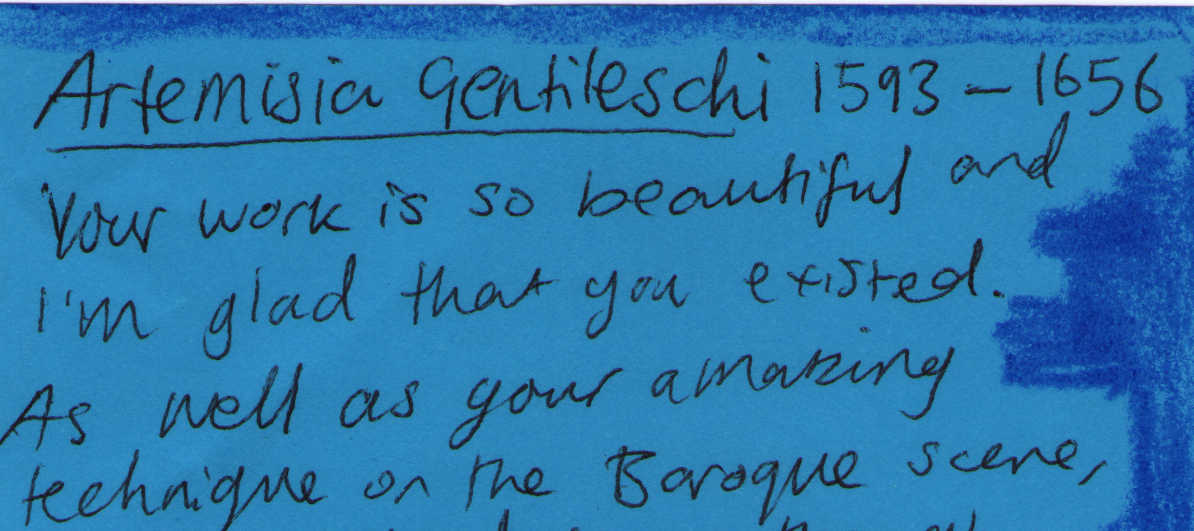 Artemisia Gentileschi 1593 – 1656
Your work is so beautiful and
I'm glad that you existed.
As well as your amazing
technique on the Baroque scene,